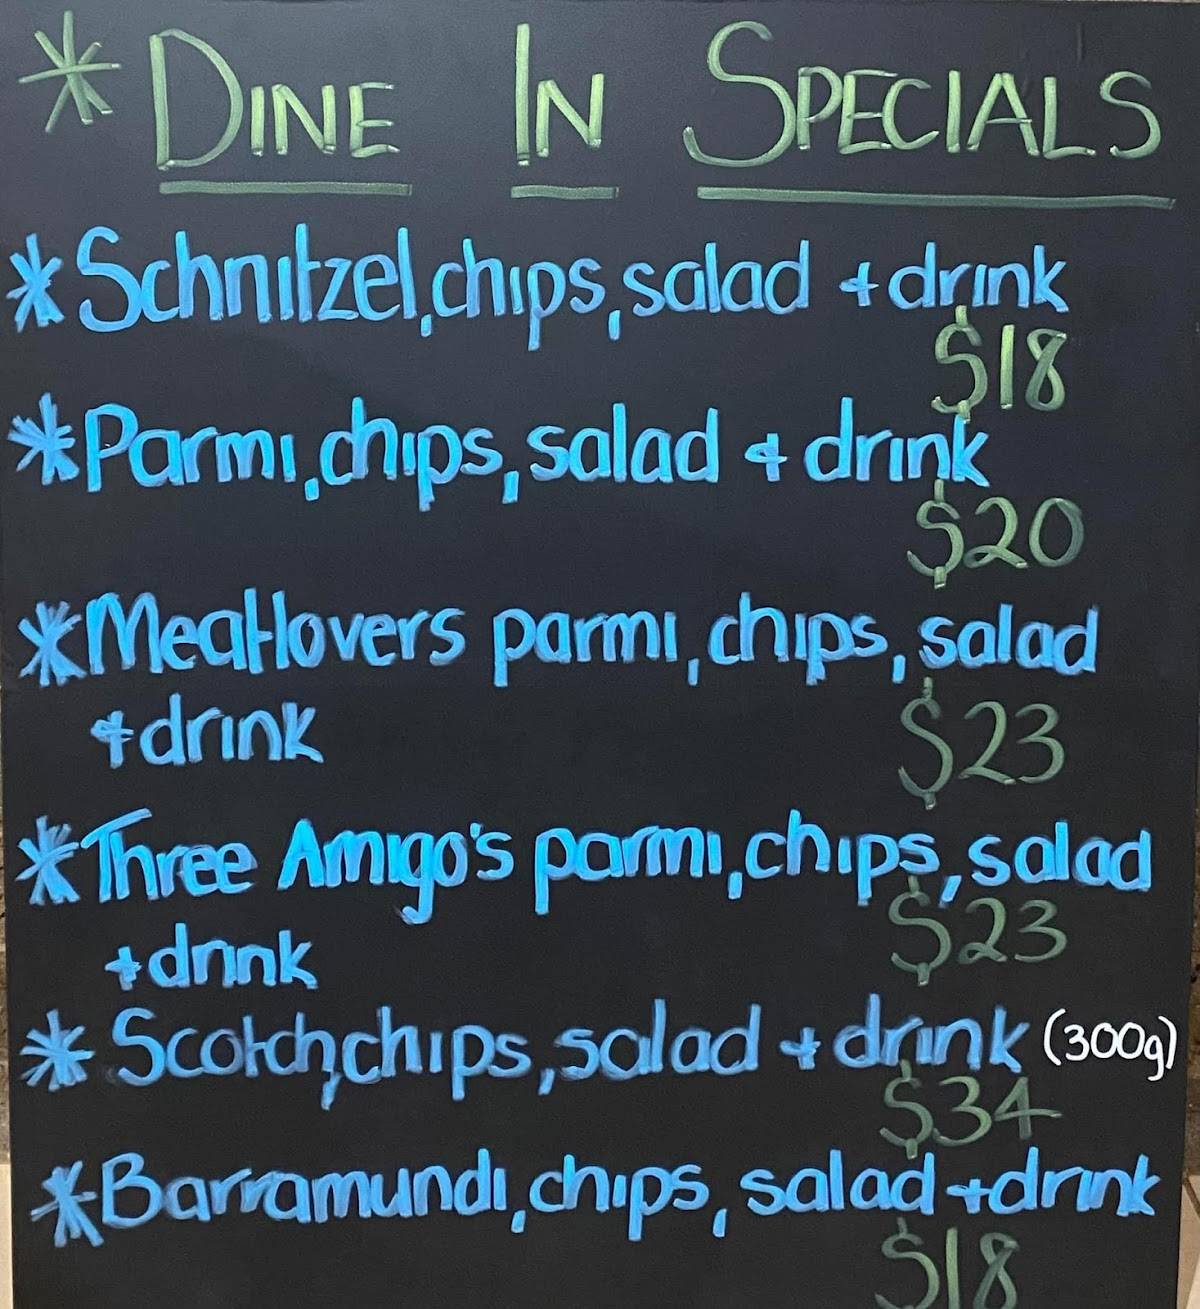 * DINE IN SPECIALS
* Schnitzel, chips, salad + drink
$18
* Parmi, chips, salad + drink
$20
* Meatlovers parmi, chips, salad
+ drink
$23
* Three Amigo's parmi, chips, salad
+ drink
$23
* Scotch, chips, salad + drink (300g)
$34
* Barramundi, chips, salad + drink
$18